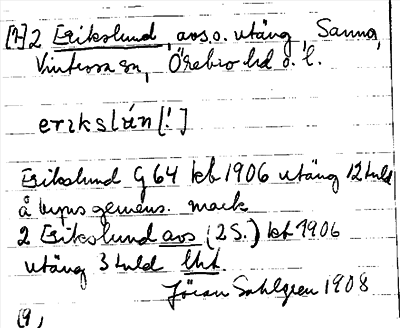 [?] 2 Erikslund, avs. o. utäng, Sanna,
Vintrosa sn, Örebro hd ö. l.
erikslún [!]
Erikslund G 64 kb 1906 utäng 12 tuld
å byns gemens. mark
2 Erikslund avs (2 S.) kb 1906
utäng 3 tuld lht.
Jöran Sahlgren 1908